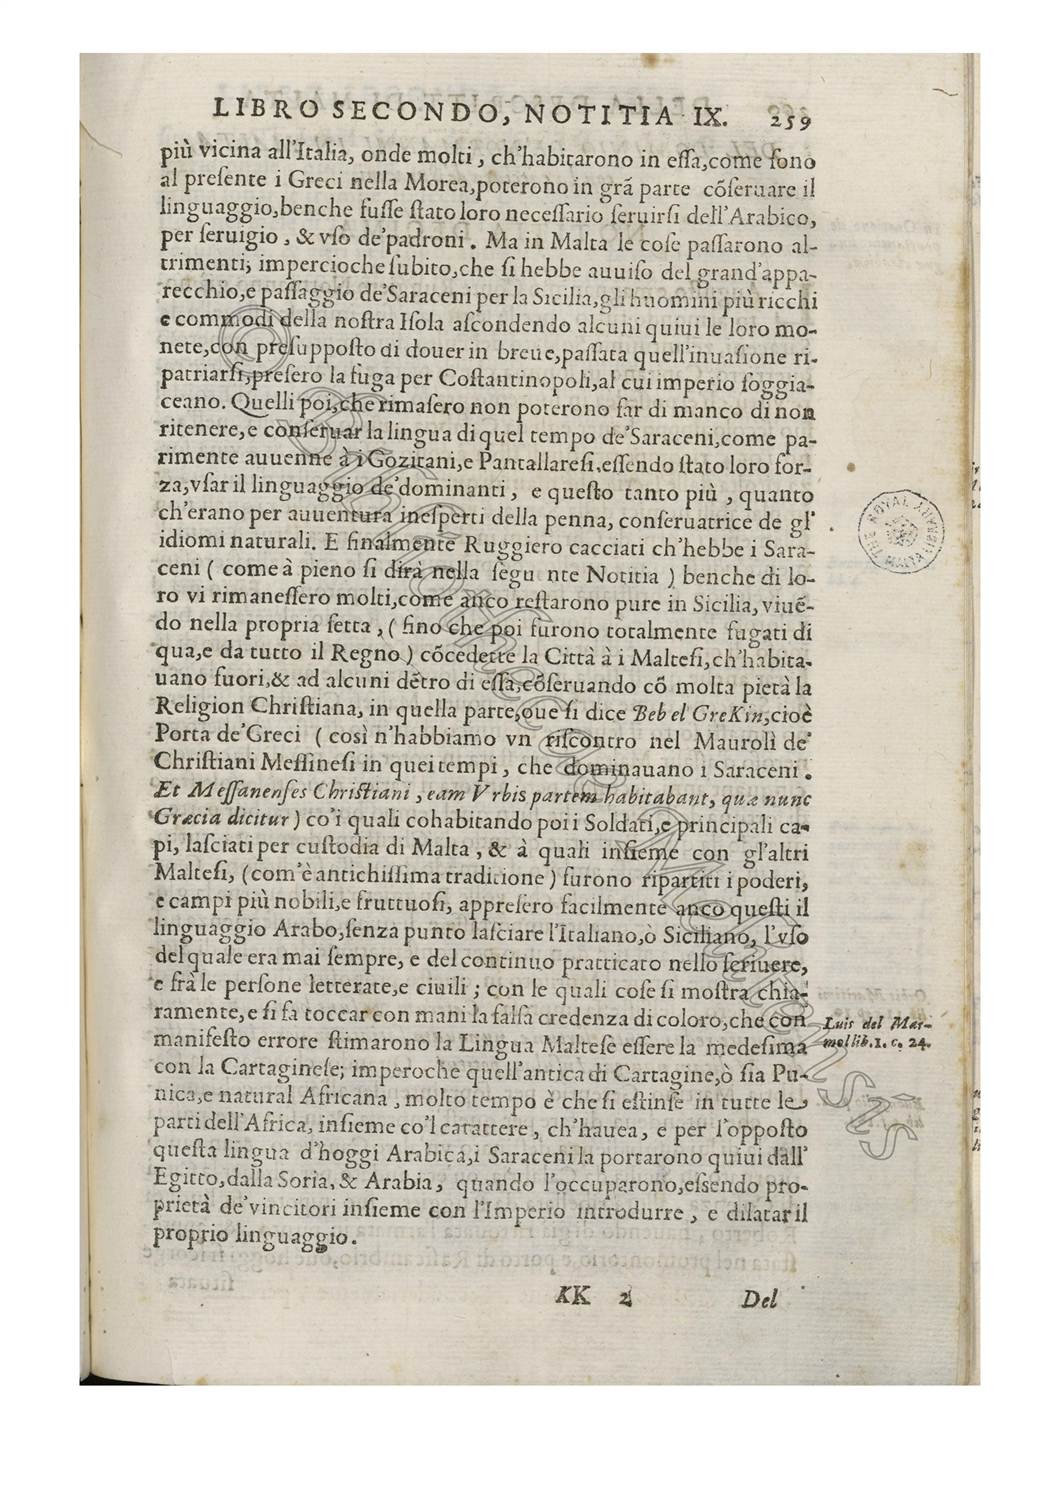 LIBRO SECONDO, NOTITIA IX. 259
più vicina all'Italia, onde molti, ch'habitarono in eſſa,come ſono
al preſente i Greci nella Morea,poterono in grã parte cõſeruare il
linguaggio,benche fuſſe ſtato loro neceſſario ſeruirſi dell'Arabico,
per ſeruigio, & vſo de'padroni. Ma in Malta le coſe paſſarono al-
trimenti; impercioche ſubito,che ſi hebbe auuiſo del grand'appa-
recchio,e paſſaggio de'Saraceni per la Sicilia,gli huomini più ricchi
e commodi della noſtra Iſola aſcondendo alcuni quiui le loro mo-
nete,con preſuppoſto di douer in breue,paſſata quell'inuaſione ri-
patriarſi,preſero la fuga per Coſtantinopoli,al cui imperio ſoggia-
ceano. Quelli poi,che rimaſero non poterono far di manco di non
ritenere,e conſeruar la lingua di quel tempo de'Saraceni,come pa-
rimente auuenne à i Gozitani,e Pantallareſi,eſſendo ſtato loro for-
za,vſar il linguaggio de'dominanti, e queſto tanto più, quanto
ch'erano per auuentura ineſperti della penna, conſeruatrice de gl'
idiomi naturali. E finalmente Ruggiero cacciati ch'hebbe i Sara-
ceni ( come à pieno ſi dirà nella ſegu nte Notitia ) benche di lo-
ro vi rimaneſſero molti,come anco reſtarono pure in Sicilia, viuẽ-
do nella propria ſetta, ( fino che poi furono totalmente fugati di
qua,e da tutto il Regno ) cõcedette la Città à i Malteſi,ch'habita-
uano fuori,& ad alcuni dẽtro di eſſa,cõſeruando cõ molta pietà la
Religion Chriſtiana, in quella parte,oue ſi dice Beb el GreKin,cioè
Porta de'Greci ( così n'habbiamo vn riſcontro nel Maurolì de'
Chriſtiani Meſſineſi in quei tempi, che dominauano i Saraceni.
Et Meſſanenſes Chriſtiani, eam Vrbis partem habitabant, quæ nunc
Græcia dicitur ) co'i quali cohabitando poi i Soldati,e principali ca-
pi, laſciati per cuſtodia di Malta, & à quali inſieme con gl'altri
Malteſi, (com'è antichiſſima tradicione ) furono ripartiti i poderi,
e campi più nobili,e fruttuoſi, appreſero facilmente anco queſti il
linguaggio Arabo,ſenza punto laſciare l'Italiano,ò Siciliano, l'vſo
del quale era mai ſempre, e del continuo pratticato nello ſcriuere,
e frà le perſone letterate,e ciuili; con le quali coſe ſi moſtra chia-
ramente,e ſi fa toccar con mani la falſa credenza di coloro,che con
manifeſto errore ſtimarono la Lingua Malteſe eſſere la medeſima
con la Cartagineſe; imperoche quell'antica di Cartagine,ò ſia Pu-
nica,e natural Africana, molto tempo è che ſi eſtinſe in tutte le
parti dell'Africa, inſieme co'l carattere, ch'hauea, e per l'oppoſto
queſta lingua d'hoggi Arabica,i Saraceni la portarono quiui dall'
Egitto,dalla Soria, & Arabia, quando l'occuparono,eſsendo pro-
prietà de'vincitori inſieme con l'Imperio introdurre, e dilatar il
proprio linguaggio.
Luis del Mar-
mol lib. 1. c. 24.
KK 2 Del
THE ROYAL LIBRARY MALTA
© Bibliotheca Alexandrina